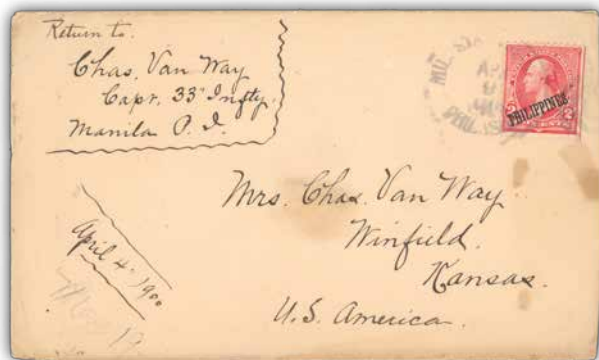 Return to.
Chas. Van Way
Capt. 33" Infty.
Manila P. I.
MIL. STA
PHIL. IS
PHILIPPINES
2 2
Mrs. Chas. Van Way
Winfield.
Kansas.
U.S. America.
April 4" 1900